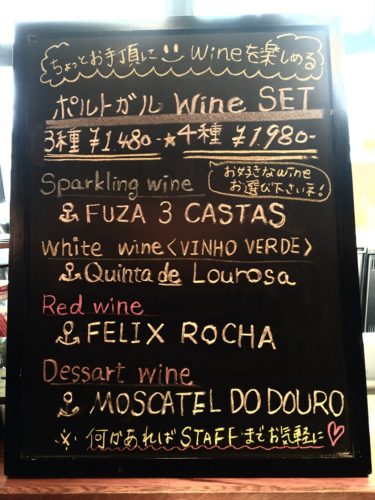 ちょっとお手頃に wineを楽しめる
ポルトガル Wine SET
3種 ¥1,480- ★ 4種 ¥1,980-
お好きなwine
お選び下さいネ!
Sparkling wine
FUZA 3 CASTAS
White wine <VINHO VERDE>
Quinta de Lourosa
Red wine
FELIX ROCHA
Dessart wine
MOSCATEL DO DOURO
※ 何かあればSTAFFまでお気軽に♡